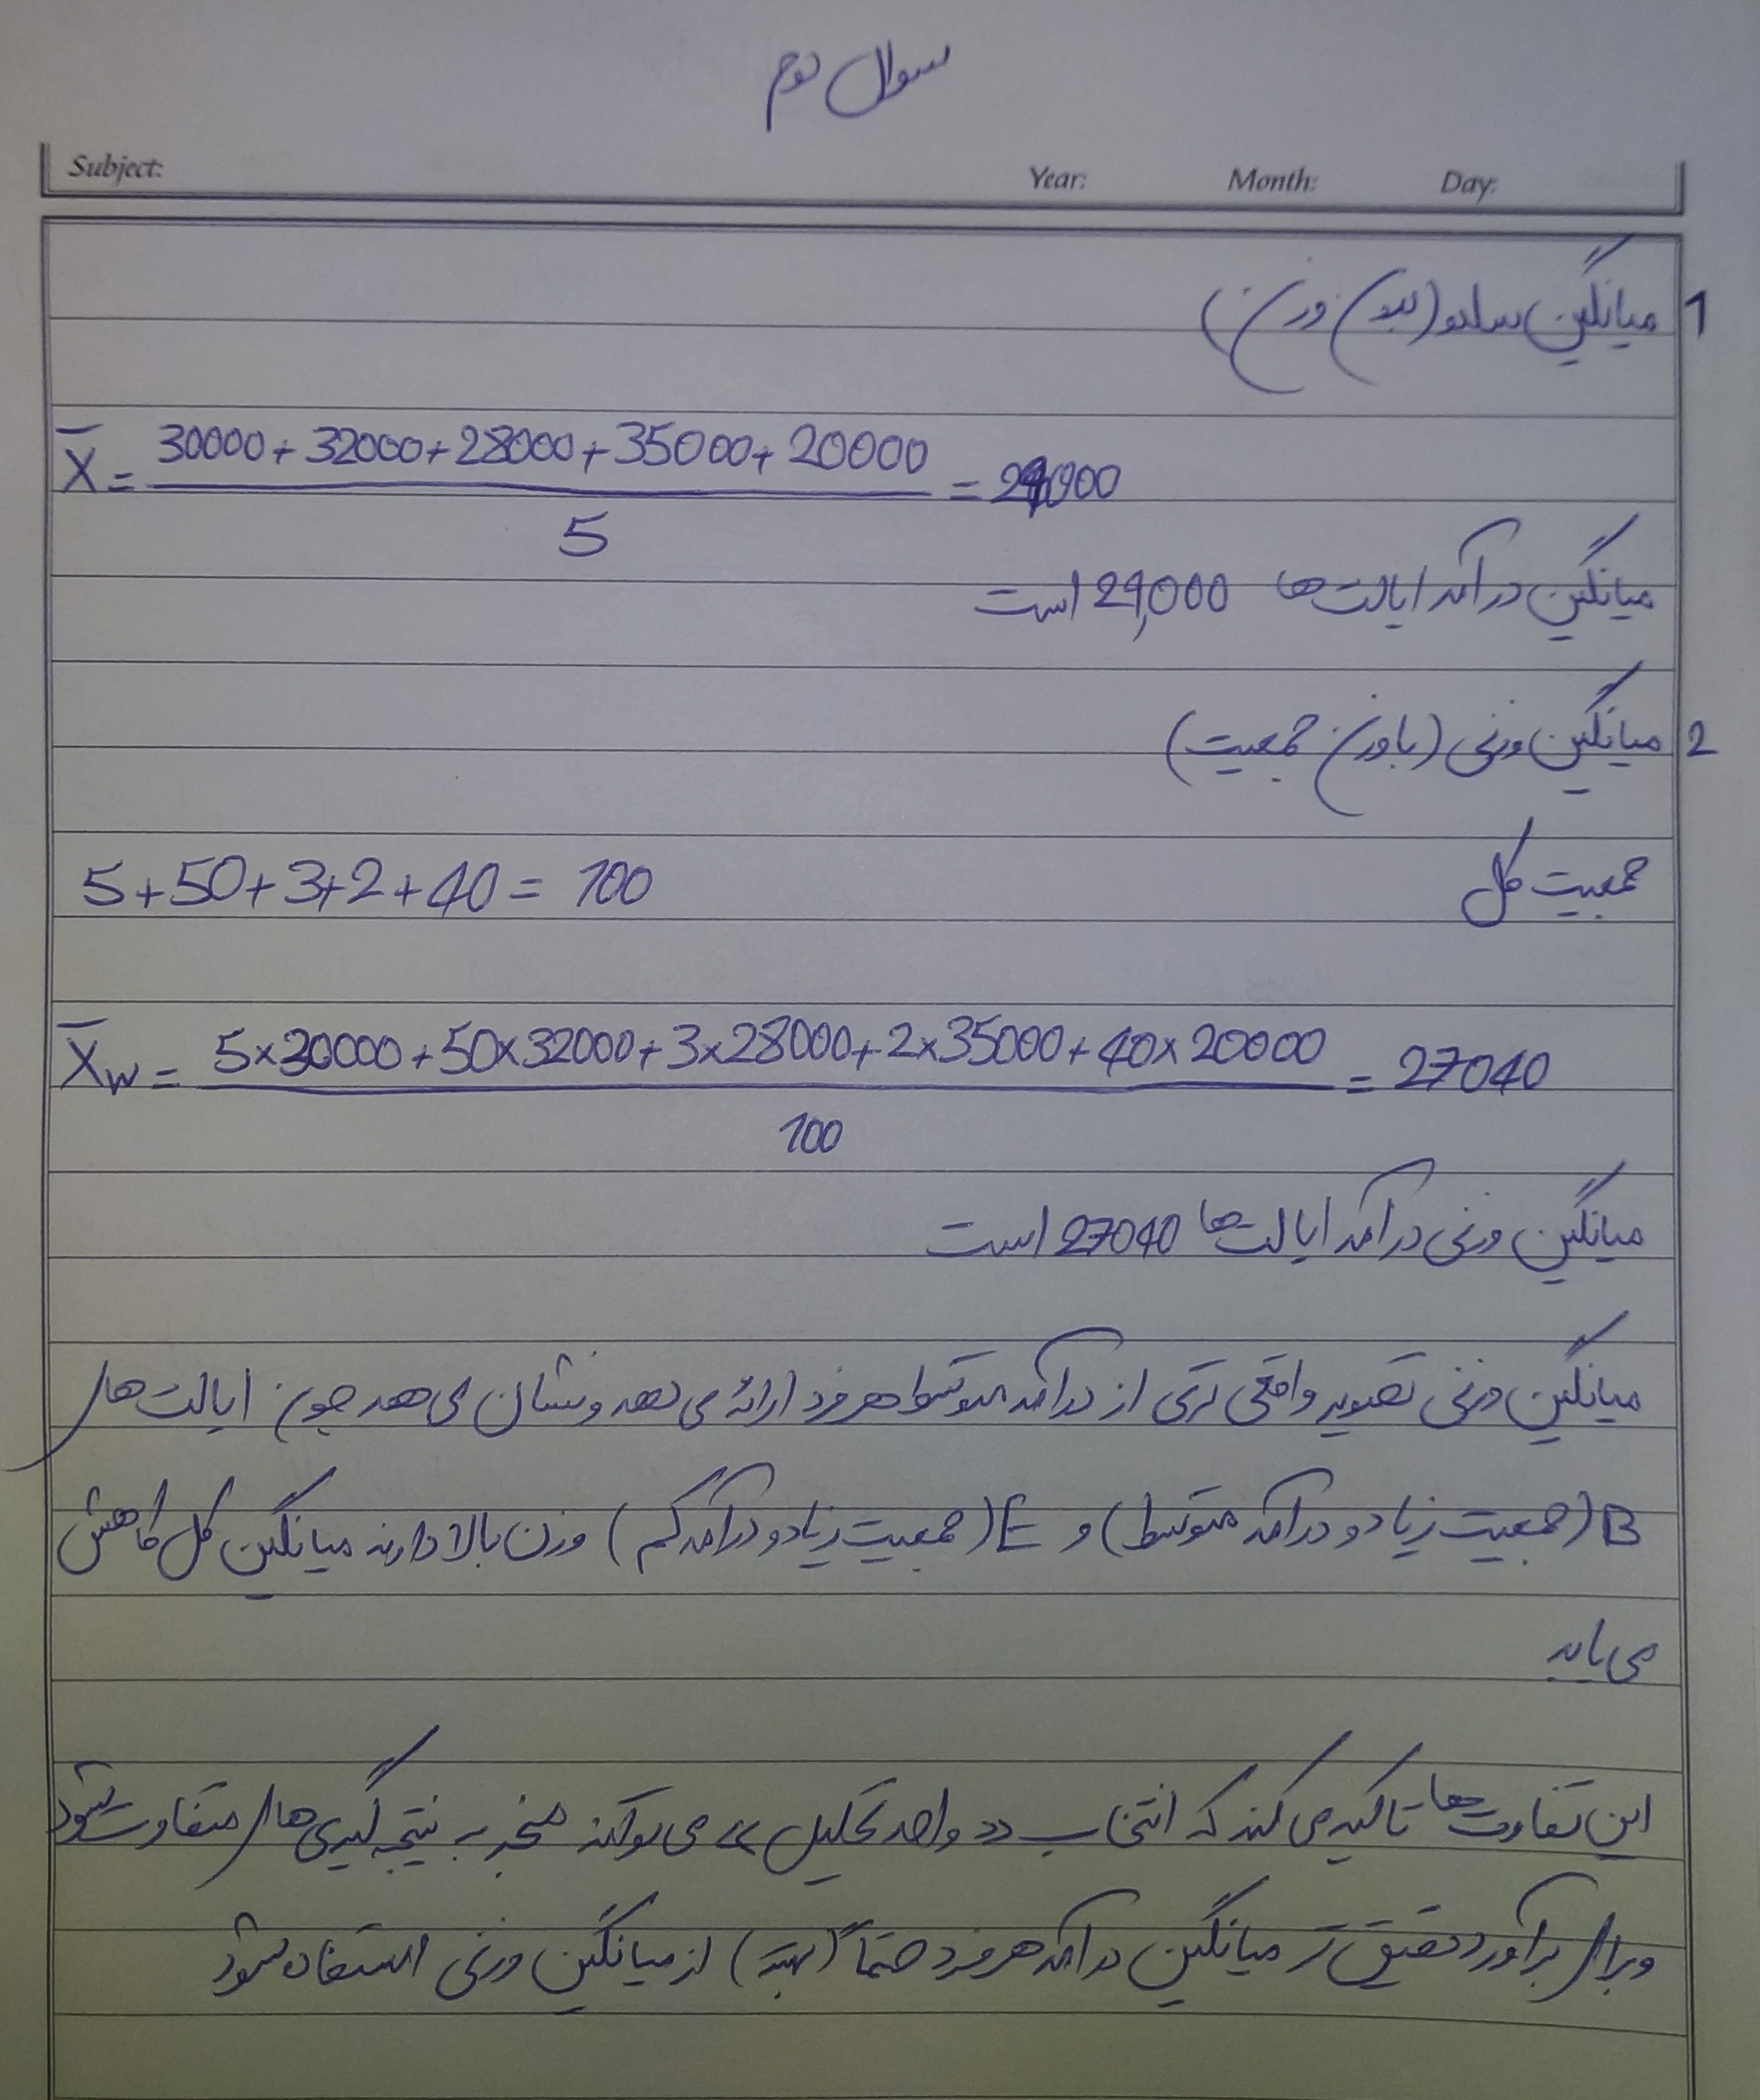 سوال دوم
Subject: Year: Month: Day:
1 میانگین ساده (بدون وزن)
X̄ = (30000 + 32000 + 28000 + 35000 + 20000) / 5 = 29000
میانگین درآمد ایالت‌ها 29,000 است
2 میانگین وزنی (با وزن جمعیت)
جمعیت کل 5 + 50 + 3 + 2 + 40 = 100
X̄w = (5×30000 + 50×32000 + 3×28000 + 2×35000 + 40×20000) / 100 = 27040
میانگین وزنی درآمد ایالت‌ها 27040 است
میانگین وزنی تصویر واقعی تری از درآمد متوسط هر فرد ارائه می دهد و نشان می دهد چون ایالت های
B (جمعیت زیاد و درآمد متوسط) و E (جمعیت زیاد و درآمد کم) وزن بالا دارند میانگین کل کاهش
می یابد
این تفاوت‌ها تاکید می کند که انتخاب «واحد تحلیل» می تواند منجر به نتیجه گیری های متفاوت شود
و برای برآورد دقیق تر میانگین درآمد هر فرد حتماً (بهتره) از میانگین وزنی استفاده شود